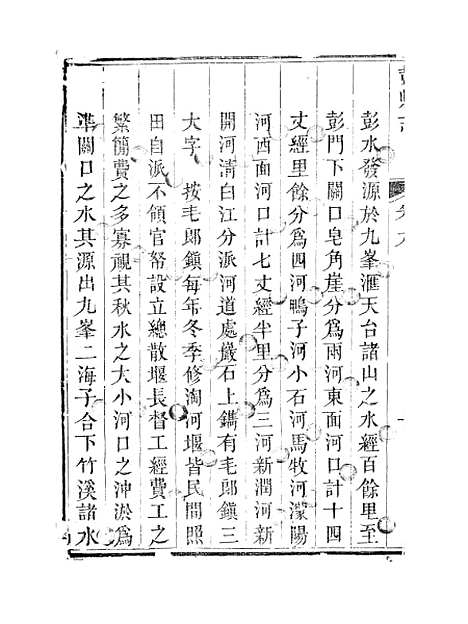 彭水發源於九峯滙天台諸山之水經百餘里至
彭門下關口皂角崖分爲兩河東面河口計十四
丈經里餘分爲四河鴨子河小石河馬牧河濛陽
河西面河口計七丈經半里分爲三河新潤河新
開河清白江分派河道處巖石上鐫有毛郎鎮三
大字　按毛郎鎮每年冬季修淘河堰皆民間照
田自派不領官帑設立總散堰長督工經費工之
繁簡費之多寡視其秋水之大小河口之沖淤爲
準關口之水其源出九峯二海子合下竹溪諸水